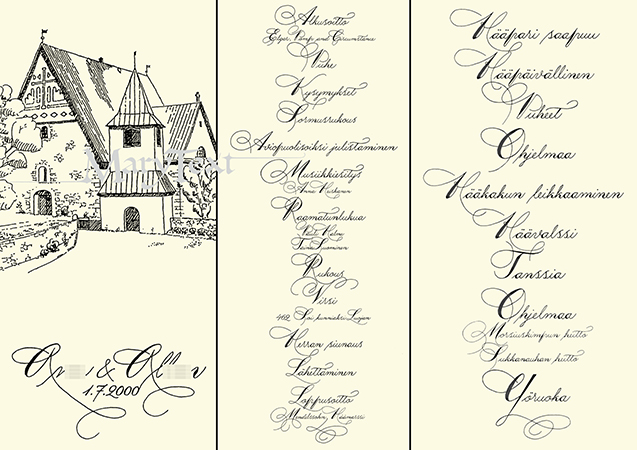 MaryText
&
1.7.2000
Alkusoitto
Elgar, Pomp and
Puhe
Kysymykset
Sormusrukous
Aviopuolisoiksi julistaminen
Musiikkiesitys
Raamatunlukua
Rukous
Virsi
462
Herran siunaus
Lähettäminen
Loppusoitto
Mendelssohn, Häämarssi
Hääpari saapuu
Hääpäivällinen
Puheet
Ohjelmaa
Hääkakun leikkaaminen
Häävalssi
Tanssia
Ohjelmaa
Morsiuskimpun heitto
Sukkanauhan heitto
Yöruoka